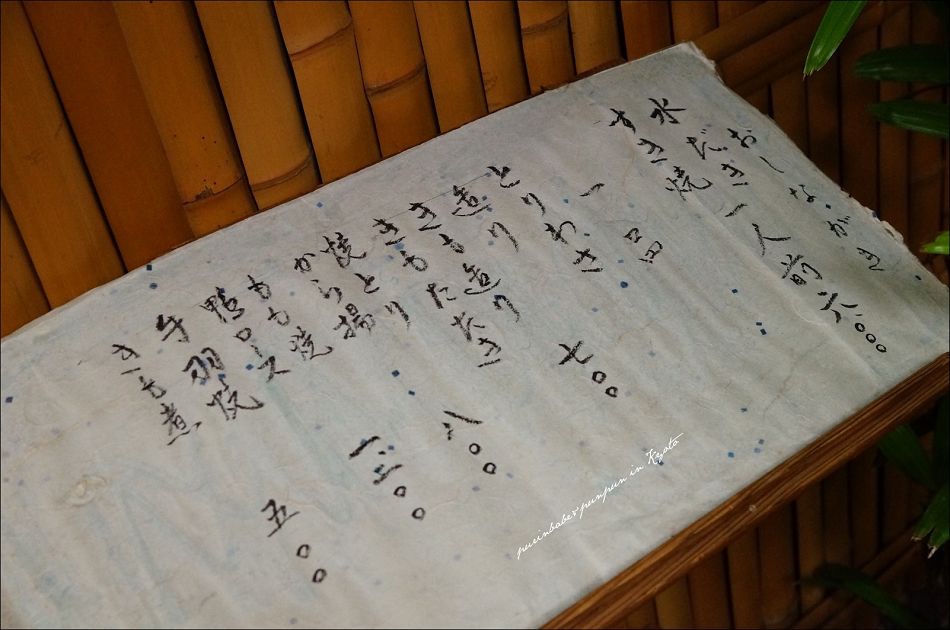 おしながき
水だき一人前六〇〇〇
すき焼
一品
とりわさ 七〇〇
造り
きも造り
きもたたき
焼とり
から揚 八〇〇
もも焼
鴨ロース 一三〇〇
手羽焼
きも煮 五〇〇
purinbabe&punpun in Kyoto